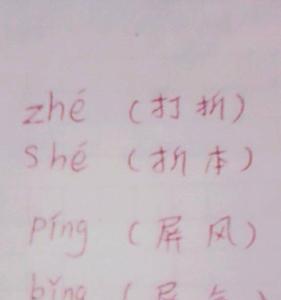 zhé（打折）
shé（折本）
píng（屏风）
bǐng（屏气）